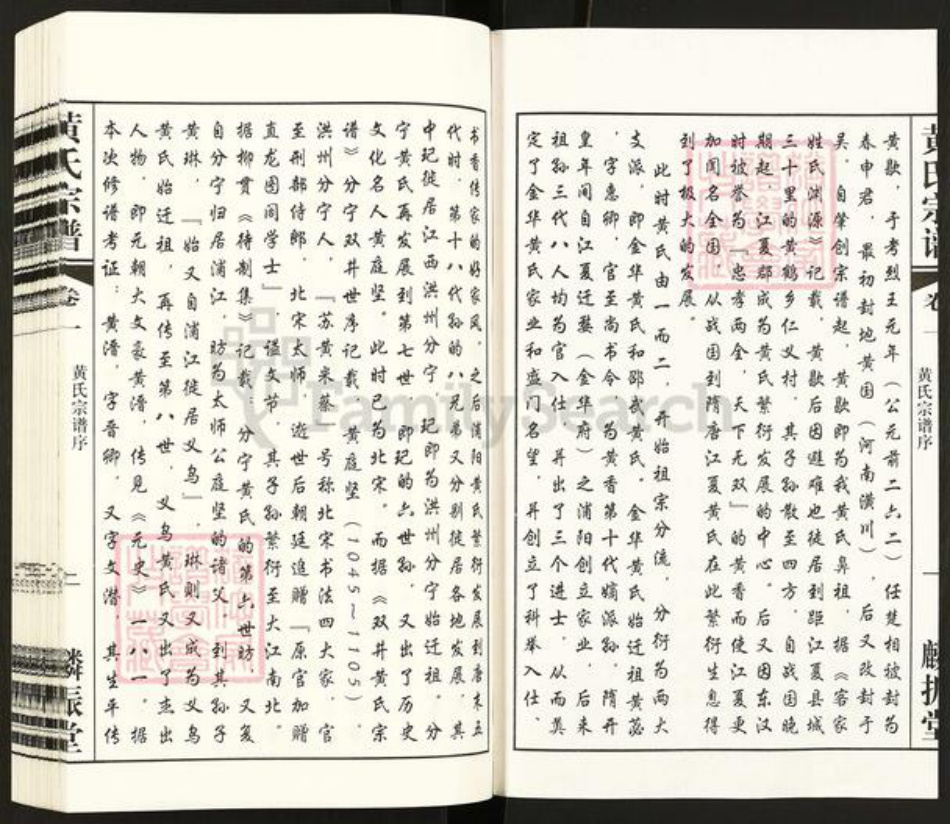 黄氏宗谱
卷一
黄氏宗谱序
麟振堂
黄歇，于考烈王元年（公元前二六二）任楚相被封为
春申君，最初封地黄国（河南潢川），后又改封于
吴，自肇创宗谱起，黄歇即为我黄氏鼻祖，据《客家
姓氏渊源》记载，黄歇后因避难也徒居到距江夏县城
三十里的黄鹤乡仁义村，其子孙散至四方，自战国晚
期起，江夏郡成为黄氏繁衍发展的中心。后又因东汉
时被誉为“忠孝两全，天下无双”的黄香而使江夏更
加闻名全国，从战国到隋唐江夏黄氏在此繁衍生息得
到了极大的发展。
此时黄氏由一而二，开始祖宗分流，分衍为两大
支派，即金华黄氏和邵武黄氏。金华黄氏始迁祖黄苾
，字惠卿，官至尚书令，为黄香第十代嫡派孙，隋开
皇年间自江夏迁婺（金华府）之浦阳创立家业，后来
祖孙三代八人均为官入仕，并出了三个进士，从而奠
定了金华黄氏家业和盛门名望，并创立了科举入仕、
书香传家的好家风。之后浦阳黄氏繁衍发展到唐末五
代时，第十八代孙的八兄弟又分别徙居各地发展，其
中玘徙居江西洪州分宁，玘即为洪州分宁始迁祖。分
宁黄氏再发展到第七世，即玘的六世孙，又出了历史
文化名人黄庭坚。此时已为北宋。而据《双井黄氏宗
谱》分宁双井世序记载，黄庭坚（1045～1105），
洪州分宁人，“苏黄米蔡”号称北宋书法四大家，官
至刑部侍郎，北宋太师，逝世后朝廷追赠“原官加赠
直龙图阁学士”，谥文节，其子孙繁衍至大江南北。
据柳贯《待制集》记载：分宁黄氏的第六世昉，又复
自分宁归居浦江，昉为太师公庭坚的诸父，到其孙子
黄琳，“始又自浦江徙居义乌”，琳则又成为义乌
黄氏始迁祖，再传至第八世，义乌黄氏又出了杰出
人物，即元朝大文豪黄溍，传见《元史》一八一。据
本次修谱考证：黄溍，字晋卿，又字文潜，其生平传
黄氏宗谱
卷一
黄氏宗谱序
二
麟振堂
FamilySearch